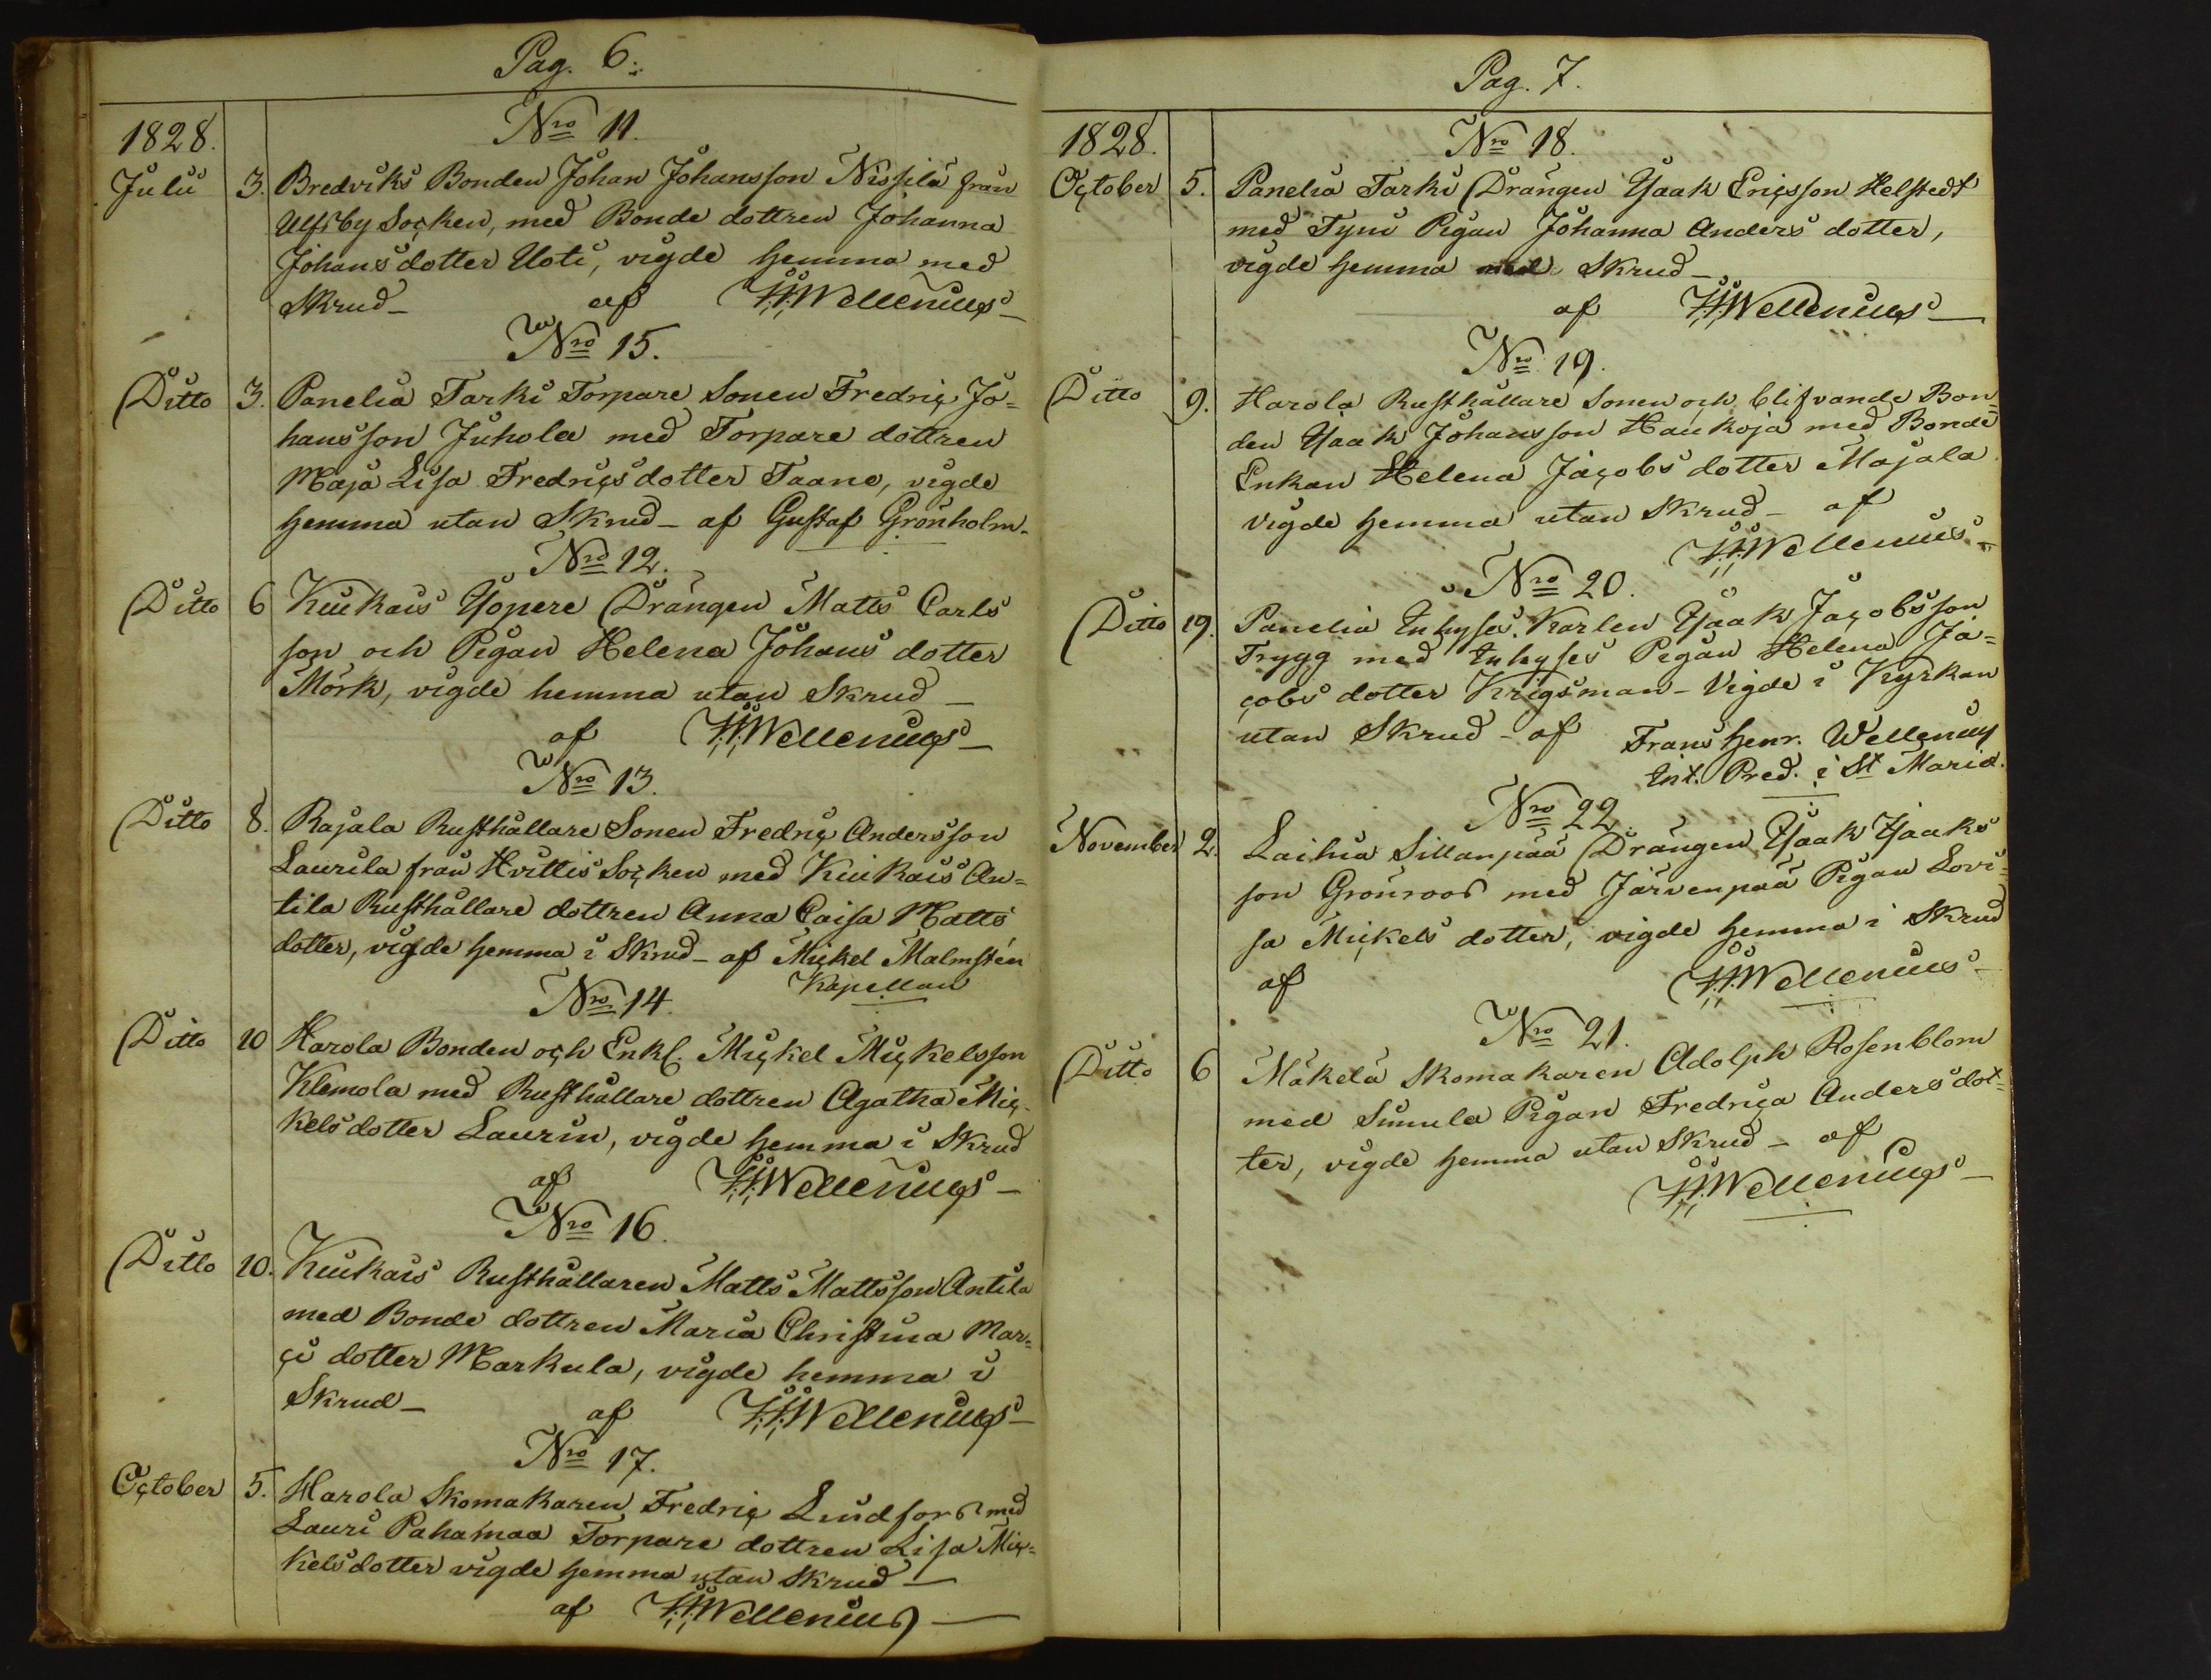 Pag. 6.
1828.
Nro 11.
Julii 3. Bredviks Bonden Johan Johansson Nissilä från
Ulfsby Socken, med Bonde dottren Johanna
Johans dotter Uoti, vigde hemma med
Skrud_ af F.H.Wellenius_
Nro 15.
Ditto 3. Panelia Tarki Torpare Sonen Fredric Jo=
hansson Juhola med Torpare dottren
Maja Lisa Fredrics dotter Taano, vigde
hemma utan Skrud_ af Gustaf Grönholm.
Nro 12.
Ditto 6 Kiukais Ypere Drängen Matts Carls
son och Pigan Helena Johans dotter
Mörk, vigde hemma utan Skrud_
af F.H.Wellenius_
Nro 13.
Ditto 8. Rajala Rusthållare Sonen Fredric Andersson
Laurila från Hvittis Socken med Kiukais An=
tila Rusthållare dottren Anna Caisa Matts
dotter, vigde hemma i Skrud_ af Mickel Malmstén
Kapellan
Nro 14.
Ditto 10 Harola Bonden och Enkl. Mickel Mickelsson
Klemola med Rusthållare dottren Agatha Mic-
kels dotter Laurin, vigde hemma i Skrud
af F.H.Wellenius_
Nro 16.
Ditto 10. Kiukais Rusthållaren Matts Mattsson Antila
med Bonde dottren Maria Christina Mar=
ci dotter Markula, vigde hemma i
Skrud_ af F.H.Wellenius_
Nro 17.
October 5. Harola Skomakaren Fredric Lindfors med
Lauri Pahamaa Torpare dottren Lisa Mic=
kels dotter vigde hemma utan Skrud_
af F.H.Wellenius_
Pag. 7.
1828.
Nro 18.
October 5. Panelia Tarki Drängen Isaak Ericsson Helstedt
med Tyni Pigan Johanna Anders dotter,
vigde hemma med Skrud_
af F.H.Wellenius_
Nro 19.
Ditto 9. Harola Rusthållare Sonen och blifvande Bon=
den Isaak Johansson Haukoja med Bonde
Enkan Helena Jacobs dotter Majala
vigde hemma utan Skrud_ af
F.H.Wellenius_
Nro 20.
Ditto 19. Panelia Inhyses Karlen Isaak Jacobsson
Trygg med Inhyses Pigan Helena Ja=
cobs dotter Krigsman_ Vigde i Kyrkan
utan Skrud_ af Frans Henr. Wellenius
Int. Pred. i St Marie.
Nro 22
November 2. Laihia Sillanpää Drängen Isaak Isaaks
son Grönroos med Järvenpää Pigan Lovi=
sa Mickels dotter, vigde hemma i Skrud
af F.H.Wellenius_
Nro 21.
Ditto 6 Mäkelä Skomakaren Adolph Rosenblom
med Simula Pigan Fredrica Anders dot=
ter, vigde hemma utan Skrud_ af
F.H.Wellenius_